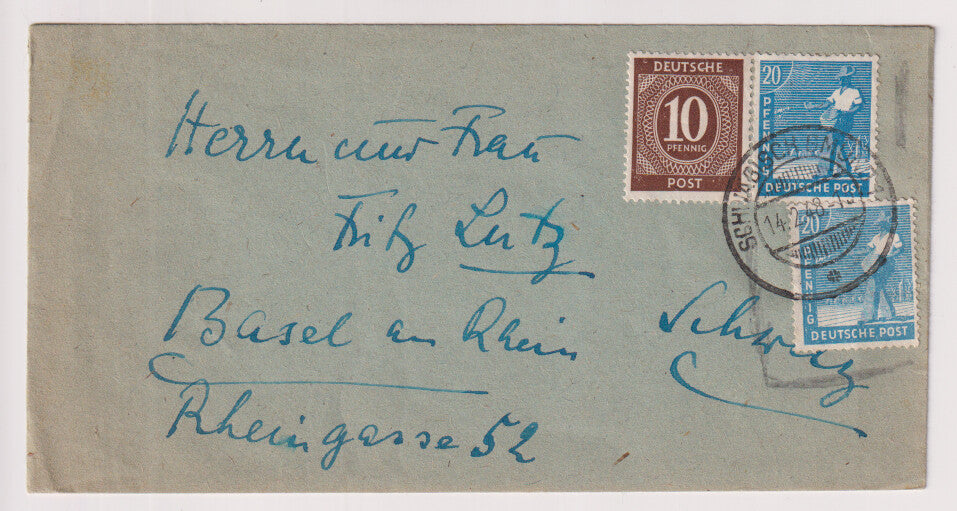 DEUTSCHE
10
PFENNIG
POST
20
PFENNIG
DEUTSCHE POST
14.2.48
20
PFENNIG
DEUTSCHE POST
Herrn und Frau
Fritz Lutz
Basel am Rhein Schweiz
Rheingasse 52